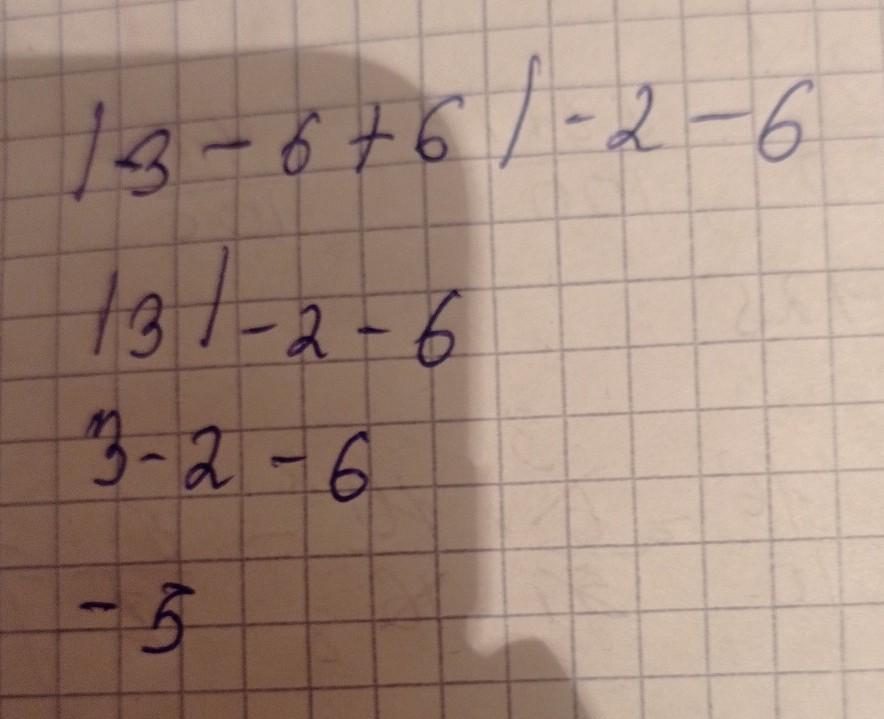 |-3 - 6 + 6| - 2 - 6
|3| - 2 - 6
3 - 2 - 6
- 5